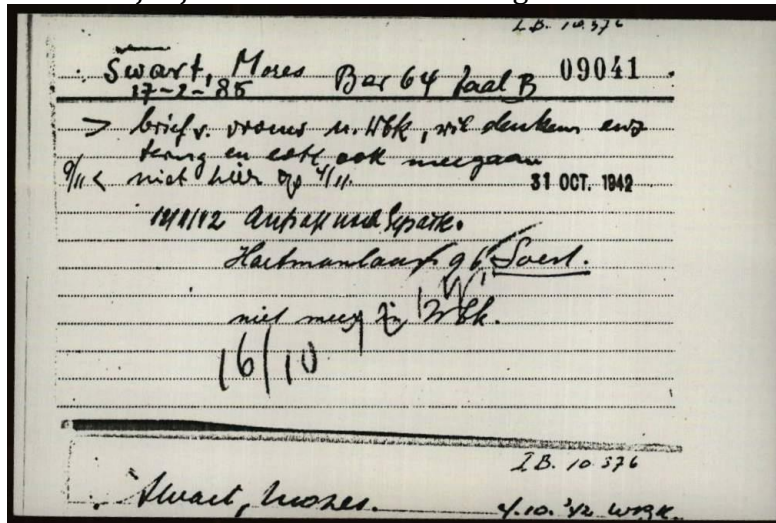 I.B. 10.376
Swart, Mozes Bar 64 Zaal B 09041
17-2-'85
> brief v. vrouw n. Wbk, wil denkens enz
terug en echt. ook meegaan
9/11 < niet hier op 4/11. 31 OCT. 1942
Hartmanlaan 96 Soest.
niet meer in Wbk.
16/10
I.B. 10.376
Swart, Mozes. 4.10.'42 WBK.